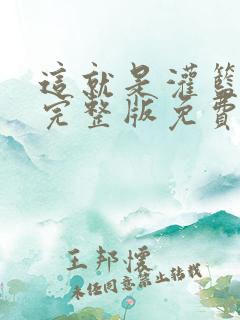 這就是灌籃
完整版免費
王邦懷
未任同意禁止轉載